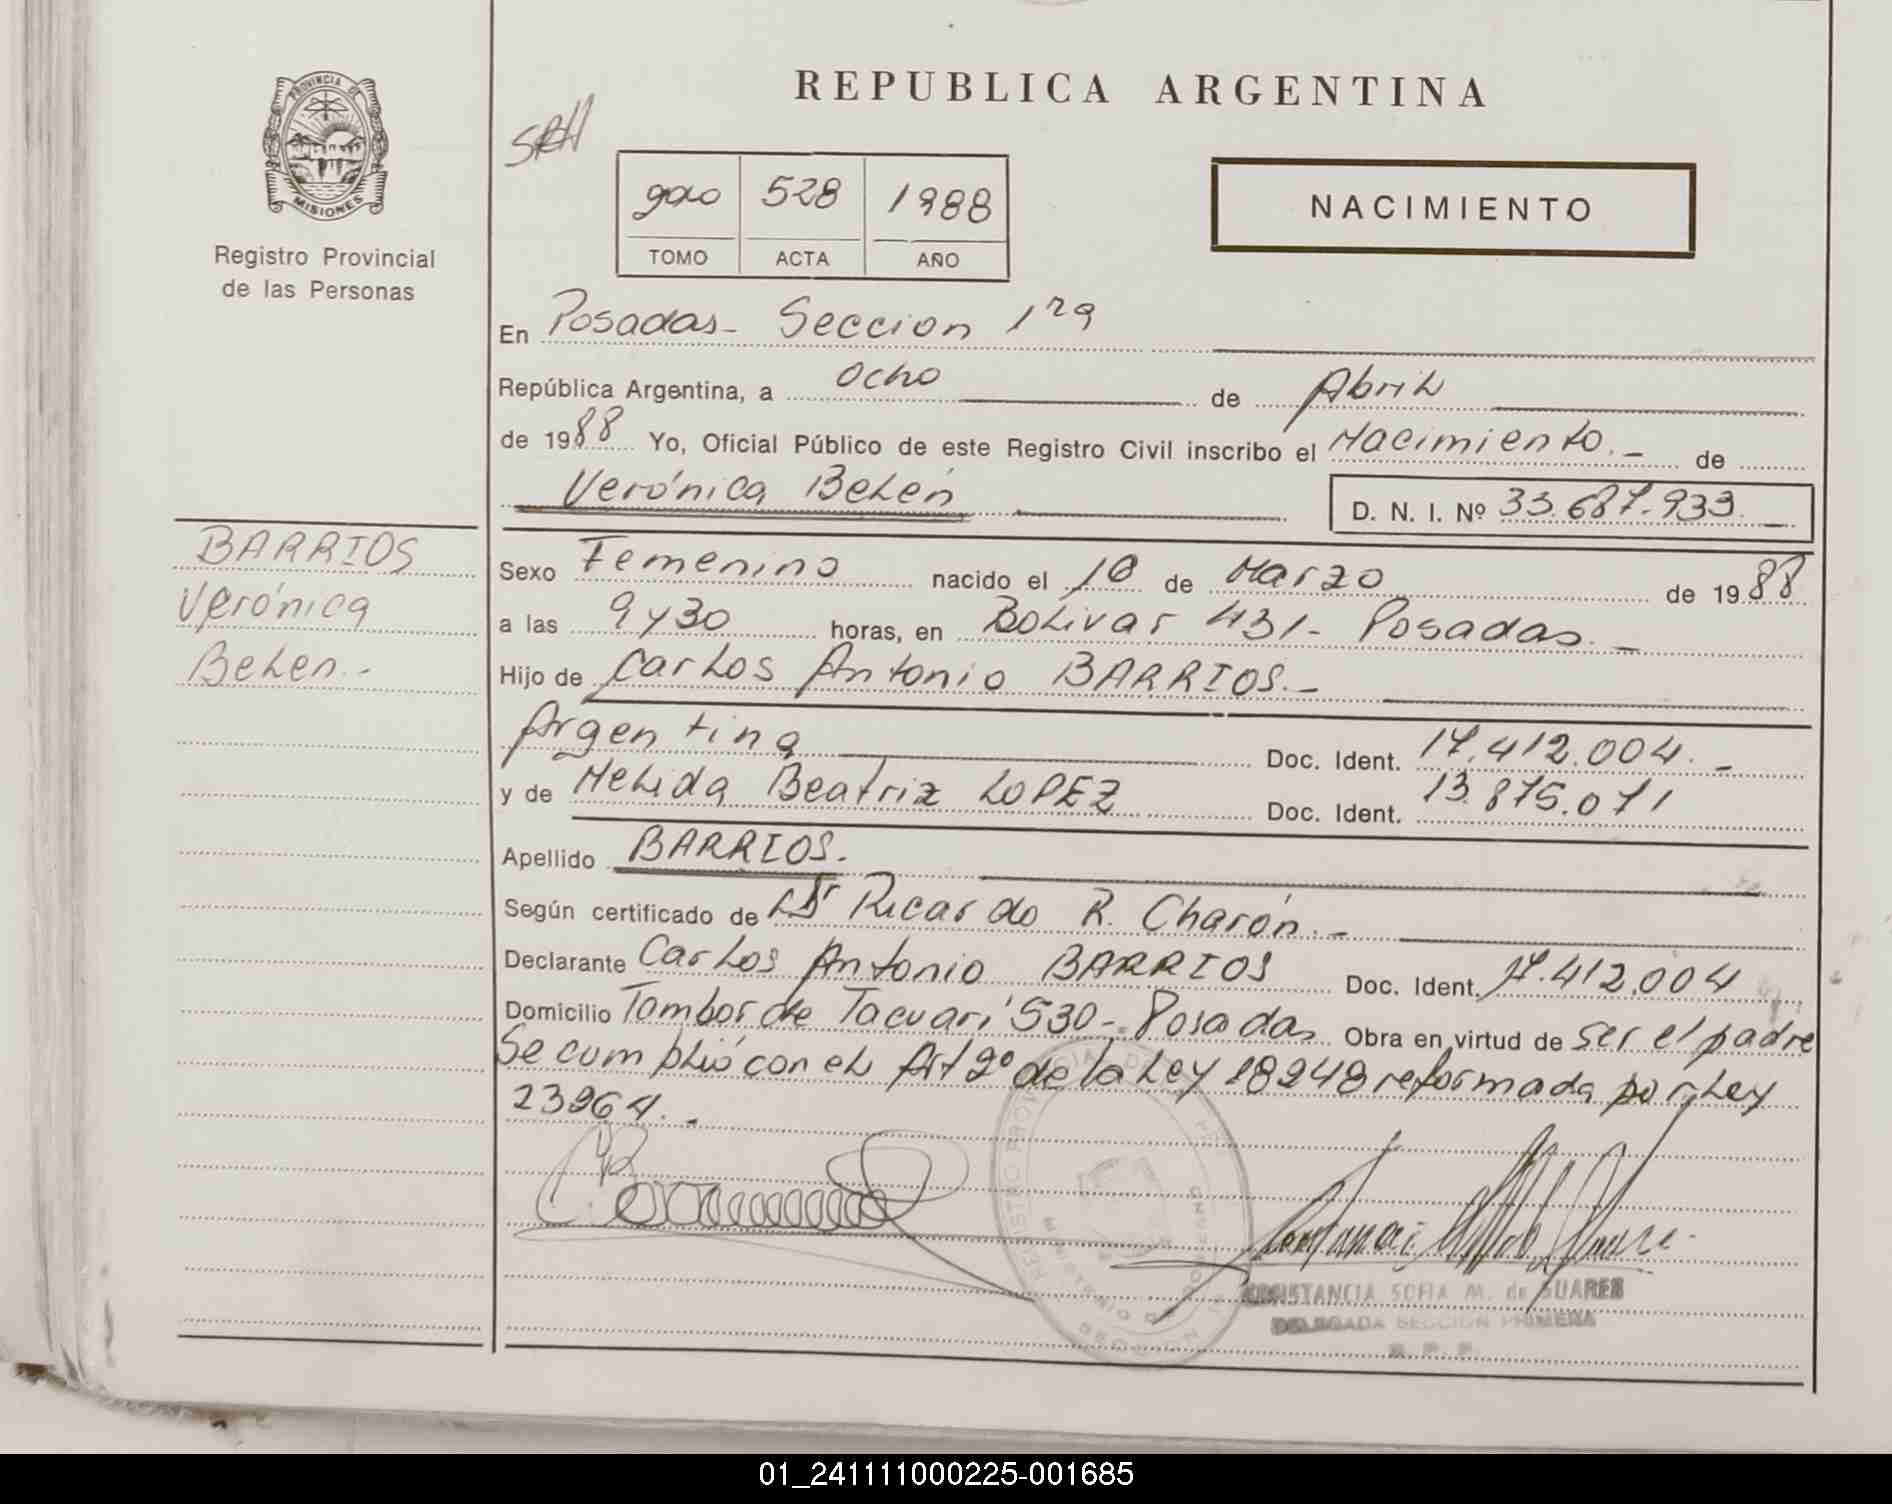 REPUBLICA ARGENTINA
PROVINCIA DE
MISIONES
Registro Provincial
de las Personas
528 1988
TOMO ACTA AÑO
NACIMIENTO
En Posadas- Seccion 1ra
República Argentina, a Ocho de Abril
de 1988 Yo, Oficial Público de este Registro Civil inscribo el Nacimiento.- de
Verónica Belén D. N. I. Nº 33.687.933.-
BARRIOS
Verónica
Belen.-
Sexo Femenino nacido el 10 de Marzo de 1988
a las 9 y 30 horas, en Bolivar 431- Posadas.-
Hijo de Carlos Antonio BARRIOS.-
Argentina Doc. Ident. 17.412.004.-
y de Nelida Beatriz LOPEZ Doc. Ident. 13.875.071
Apellido BARRIOS.
Según certificado de Dr Ricardo R. Charón.-
Declarante Carlos Antonio BARRIOS Doc. Ident. 17.412.004
Domicilio Tambor de Tacuarí 530-. Posadas Obra en virtud de ser el padre
Se cumplió con el Art 2º de la Ley 18248 reformada por Ley
23264.-
CONSTANCIA SOFIA M. de SUARES
DELEGADA SECCION PRIMERA
R. P. P.
01_241111000225-001685